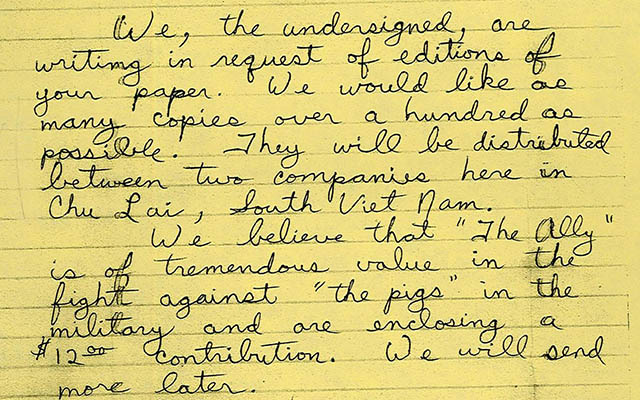 We, the undersigned, are
writing in request of editions of
your paper. We would like as
many copies over a hundred as
possible. They will be distributed
between two companies here in
Chu Lai, South Viet Nam.
We believe that "The Ally"
is of tremendous value in the
fight against "the pigs" in the
military and are enclosing a
$12.00 contribution. We will send
more later.